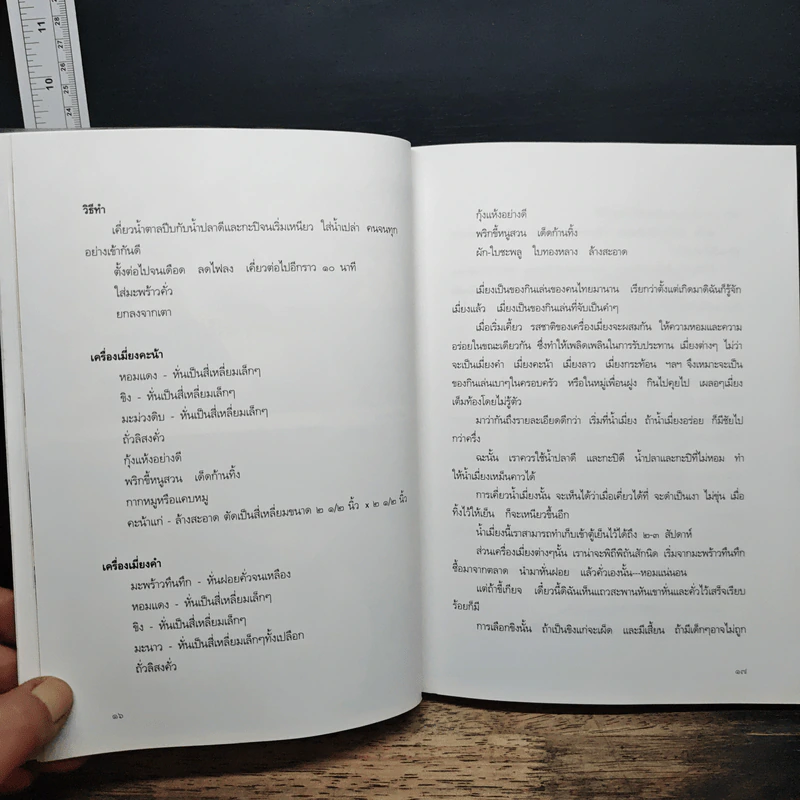 11
10
28
27
26
25
24
วิธีทำ
เคี่ยวน้ำตาลปีบกับน้ำปลาดีและกะปิจนเริ่มเหนียว ใส่น้ำเปล่า คนจนทุก
อย่างเข้ากันดี
ตั้งต่อไปจนเดือด ลดไฟลง เคี่ยวต่อไปอีกราว ๑๐ นาที
ใส่มะพร้าวคั่ว
ยกลงจากเตา
เครื่องเมี่ยงคะน้า
หอมแดง - หั่นเป็นสี่เหลี่ยมเล็กๆ
ขิง - หั่นเป็นสี่เหลี่ยมเล็กๆ
มะม่วงดิบ - หั่นเป็นสี่เหลี่ยมเล็กๆ
ถั่วลิสงคั่ว
กุ้งแห้งอย่างดี
พริกขี้หนูสวน เด็ดก้านทิ้ง
กากหมูหรือแคบหมู
คะน้าแก่ - ล้างสะอาด ตัดเป็นสี่เหลี่ยมขนาด ๒ ๑/๒ นิ้ว x ๒ ๑/๒ นิ้ว
เครื่องเมี่ยงคำ
มะพร้าวทึนทึก - หั่นฝอยคั่วจนเหลือง
หอมแดง - หั่นเป็นสี่เหลี่ยมเล็กๆ
ขิง - หั่นเป็นสี่เหลี่ยมเล็กๆ
มะนาว - หั่นเป็นสี่เหลี่ยมเล็กๆทั้งเปลือก
ถั่วลิสงคั่ว
๑๖
กุ้งแห้งอย่างดี
พริกขี้หนูสวน เด็ดก้านทิ้ง
ผัก-ใบชะพลู ใบทองหลาง ล้างสะอาด
เมี่ยงเป็นของกินเล่นของคนไทยมานาน เรียกว่าตั้งแต่เกิดมาดิฉันก็รู้จัก
เมี่ยงแล้ว เมี่ยงเป็นของกินเล่นที่จับเป็นคำๆ
เมื่อเริ่มเคี้ยว รสชาติของเครื่องเมี่ยงจะผสมกัน ให้ความหอมและความ
อร่อยในขณะเดียวกัน ซึ่งทำให้เพลิดเพลินในการรับประทาน เมี่ยงต่างๆ ไม่ว่า
จะเป็นเมี่ยงคำ เมี่ยงคะน้า เมี่ยงลาว เมี่ยงกระท้อน ฯลฯ จึงเหมาะจะเป็น
ของกินเล่นเบาๆในครอบครัว หรือในหมู่เพื่อนฝูง กินไปคุยไป เผลอๆเมี่ยง
เต็มท้องโดยไม่รู้ตัว
มาว่ากันถึงรายละเอียดดีกว่า เริ่มที่น้ำเมี่ยง ถ้าน้ำเมี่ยงอร่อย ก็มีชัยไป
กว่าครึ่ง
ฉะนั้น เราควรใช้น้ำปลาดี และกะปิดี น้ำปลาและกะปิที่ไม่หอม ทำ
ให้น้ำเมี่ยงเหม็นคาวได้
การเคี่ยวน้ำเมี่ยงนั้น จะเห็นได้ว่าเมื่อเคี่ยวได้ที่ จะดำเป็นเงา ไม่ขุ่น เมื่อ
ทิ้งไว้ให้เย็น ก็จะเหนียวขึ้นอีก
น้ำเมี่ยงนี้เราสามารถทำเก็บเข้าตู้เย็นไว้ได้ถึง ๒-๓ สัปดาห์
ส่วนเครื่องเมี่ยงต่างๆนั้น เราน่าจะพิถีพิถันสักนิด เริ่มจากมะพร้าวทึนทึก
ซื้อมาจากตลาด นำมาหั่นฝอย แล้วคั่วเองนั้น—หอมแน่นอน
แต่ถ้าขี้เกียจ เดี๋ยวนี้ดิฉันเห็นแถวสะพานหันเขาหั่นและคั่วไว้เสร็จเรียบ
ร้อยก็มี
การเลือกขิงนั้น ถ้าเป็นขิงแก่จะเผ็ด และมีเสี้ยน ถ้ามีเด็กๆอาจไม่ถูก
๑๗